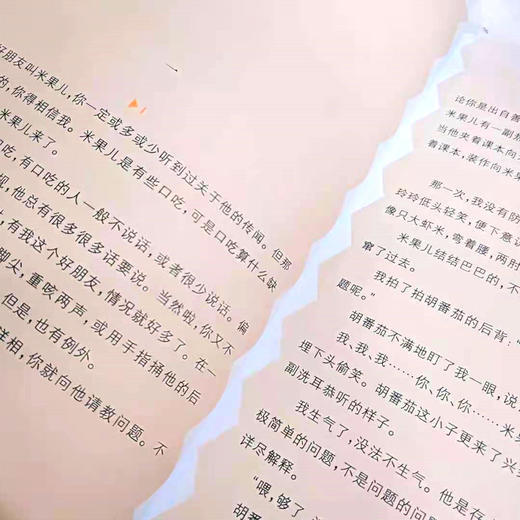 一
1
好朋友叫米果儿，你一定或多或少听到过关于他的传闻。但那
的，你得相信我。米果儿是有些口吃，可是口吃算什么缺
米果儿来了。
口吃，有口吃的人一般不说话，或者很少说话。偏
他总有很多很多话要说。当然啦，你又不
有我这个好朋友，情况就好多了。在一
脚尖，重咳两声，或用手指捅他的后
但是，也有例外。
洋相，你就问他请教问题。不
论你是出自善
米果儿有一副热
当他夹着课本向
着课本，装作向米果
那一次，我没有防
玲玲低头轻笑，便下意识
像只大虾米，弯着腰，两肘
窜了过去。
米果儿结结巴巴的，不
我拍了拍胡番茄的后背："
题呢。"
胡番茄不满地盯了我一眼，说
我、我、我……你、你、你……米果
埋下头偷笑。胡番茄这小子更来了兴
副洗耳恭听的样子。
我生气了，没法不生气。他是存
极简单的问题，不是问题的问题
详尽解释。
"喂，够了，
胡番茄